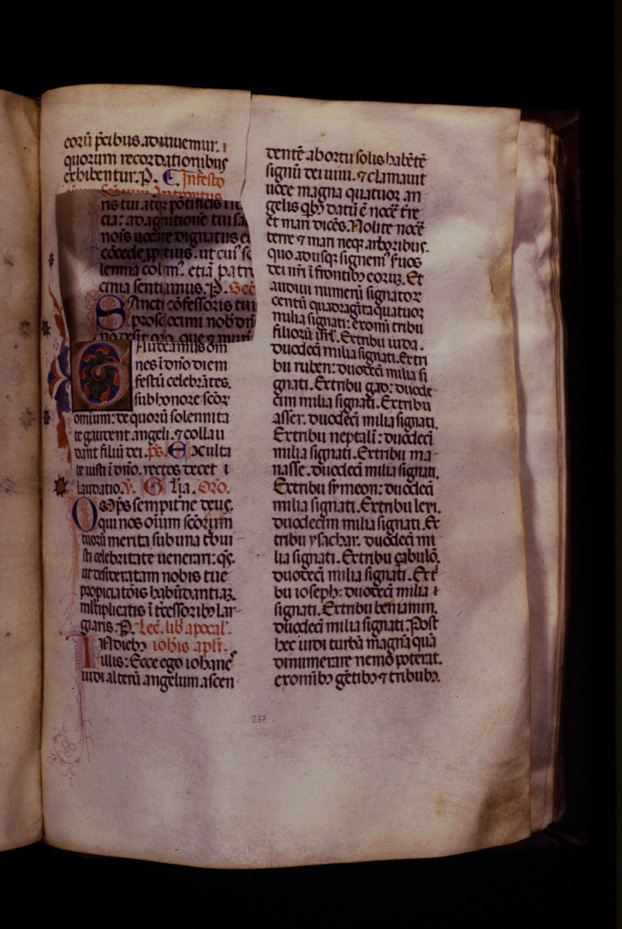 corū p̄cibus adiuuemur. ⁊
quorum recordationibus
exhibentur. P. In festo
ris tui atqꝫ pontificis
cia: ad agnitionē tui
nois uocare dignatus
cōcede ꝓpitius. ut cui'
lennia colim'. etiā patro
cinia sentiamus. P.
Sancti cōfessoris tui
Gaudeamus om
nes i dn̄o diem
festū celebrātes.
sub honore scōꝝ
omnium: de quorū solennita
te gaudent angeli. ⁊ collau
dant filiū dei. ps. Exulta
te iusti i dn̄o. rectos decet
laudatio. V. Glīa. Oro.
Omp̄s sempitn̄e deus.
qui nos oīum scōrum
merita sub una tribui
sti celebritate uenerari: qs.
ut desideratam nobis tue
propiciatōis habūdantiaꝫ.
multiplicatis ītercessoribꝫ lar
giaris. P. Lec. lib' apocal'.
In diebꝫ iohīs apl'i.
illis: Ecce ego iohanes
uidi alterū angelum ascen
dentē ab ortu solis habētē
signū dei uiui. ⁊ clamauit
uoce magna quatuor an
gelis qbꝫ datū ē nocē tr̄e
et mari dicēs. Nolite nocē
terre ⁊ mari neqꝫ arboribus.
quo adusqꝫ signem' suos
dei nr̄i ī frontibꝫ eorum. Et
audiui numerū signatoꝝ
centū quadragīta quatuor
milia signati: ex omi tribu
filiorū isrl'. Ex tribu iuda.
duodeci milia signati. Ex tri
bu ruben: duodeci milia si
gnati. Ex tribu gad: duode
cim milia signati. Ex tribu
asser. duodeci milia signati.
Ex tribu neptali: duodeci
milia signati. Ex tribu ma
nasse. duodeci milia signati.
Ex tribu symeon: duodeci
milia signati. Ex tribu leui.
duodecim milia signati. Ex
tribu ysachar. duodeci mi
lia signati. Ex tribu çabulō.
duodeci milia signati. Ex t'
bu ioseph: duodeci milia
signati. Ex tribu beniamin.
duodeci milia signati. Post
hec uidi turbā magnā quā
dinumerare nemo poterat.
ex omībꝫ gētibꝫ ⁊ tribubꝫ.
237